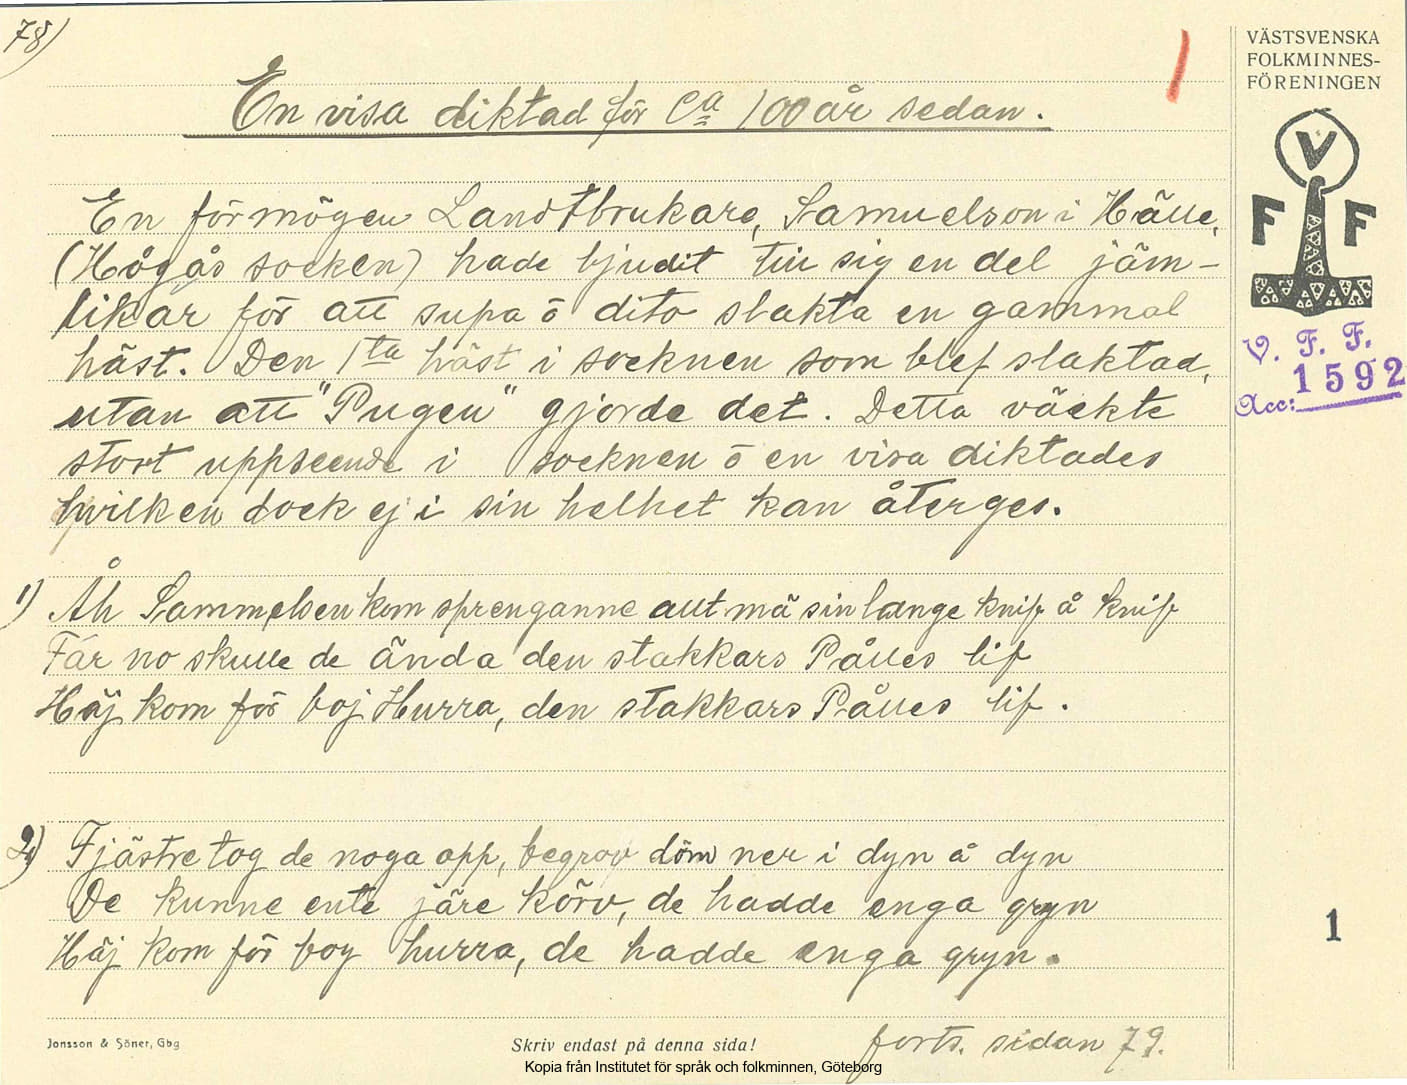 78)
En visa diktad för Ca 100 år sedan.
En förmögen Landtbrukare, Samuelson i Hälle,
(Högås socken) hade bjudit till sig en del jäm-
likar för att supa ö dito slakta en gammal
häst. Den 1ta häst i socknen som blef slaktad,
utan att "Pugen" gjorde det. Detta väckte
stort uppseende i socknen ö en visa diktades
hvilken dock ej i sin helhet kan återges.
1) Åh Sammelsen kom sprenganne aut mä sin lange knif å knif
Får no skulle de ända den stakkars Pålles lif
Häj kom för boj Hurra, den stakkars Pålles lif.
2) Fjästre tog de noga opp, begrov döm ner i dyn å dyn
De kunne ente järe körv, de hadde enga gryn
Häj kom för boy hurra, de hadde enga gryn.
forts. sidan 79.
VÄSTSVENSKA
FOLKMINNES-
FÖRENINGEN
V
F F
V. F. F.
1592
Acc:
1
Jonsson & Söner, Gbg
Skriv endast på denna sida!
Kopia från Institutet för språk och folkminnen, Göteborg